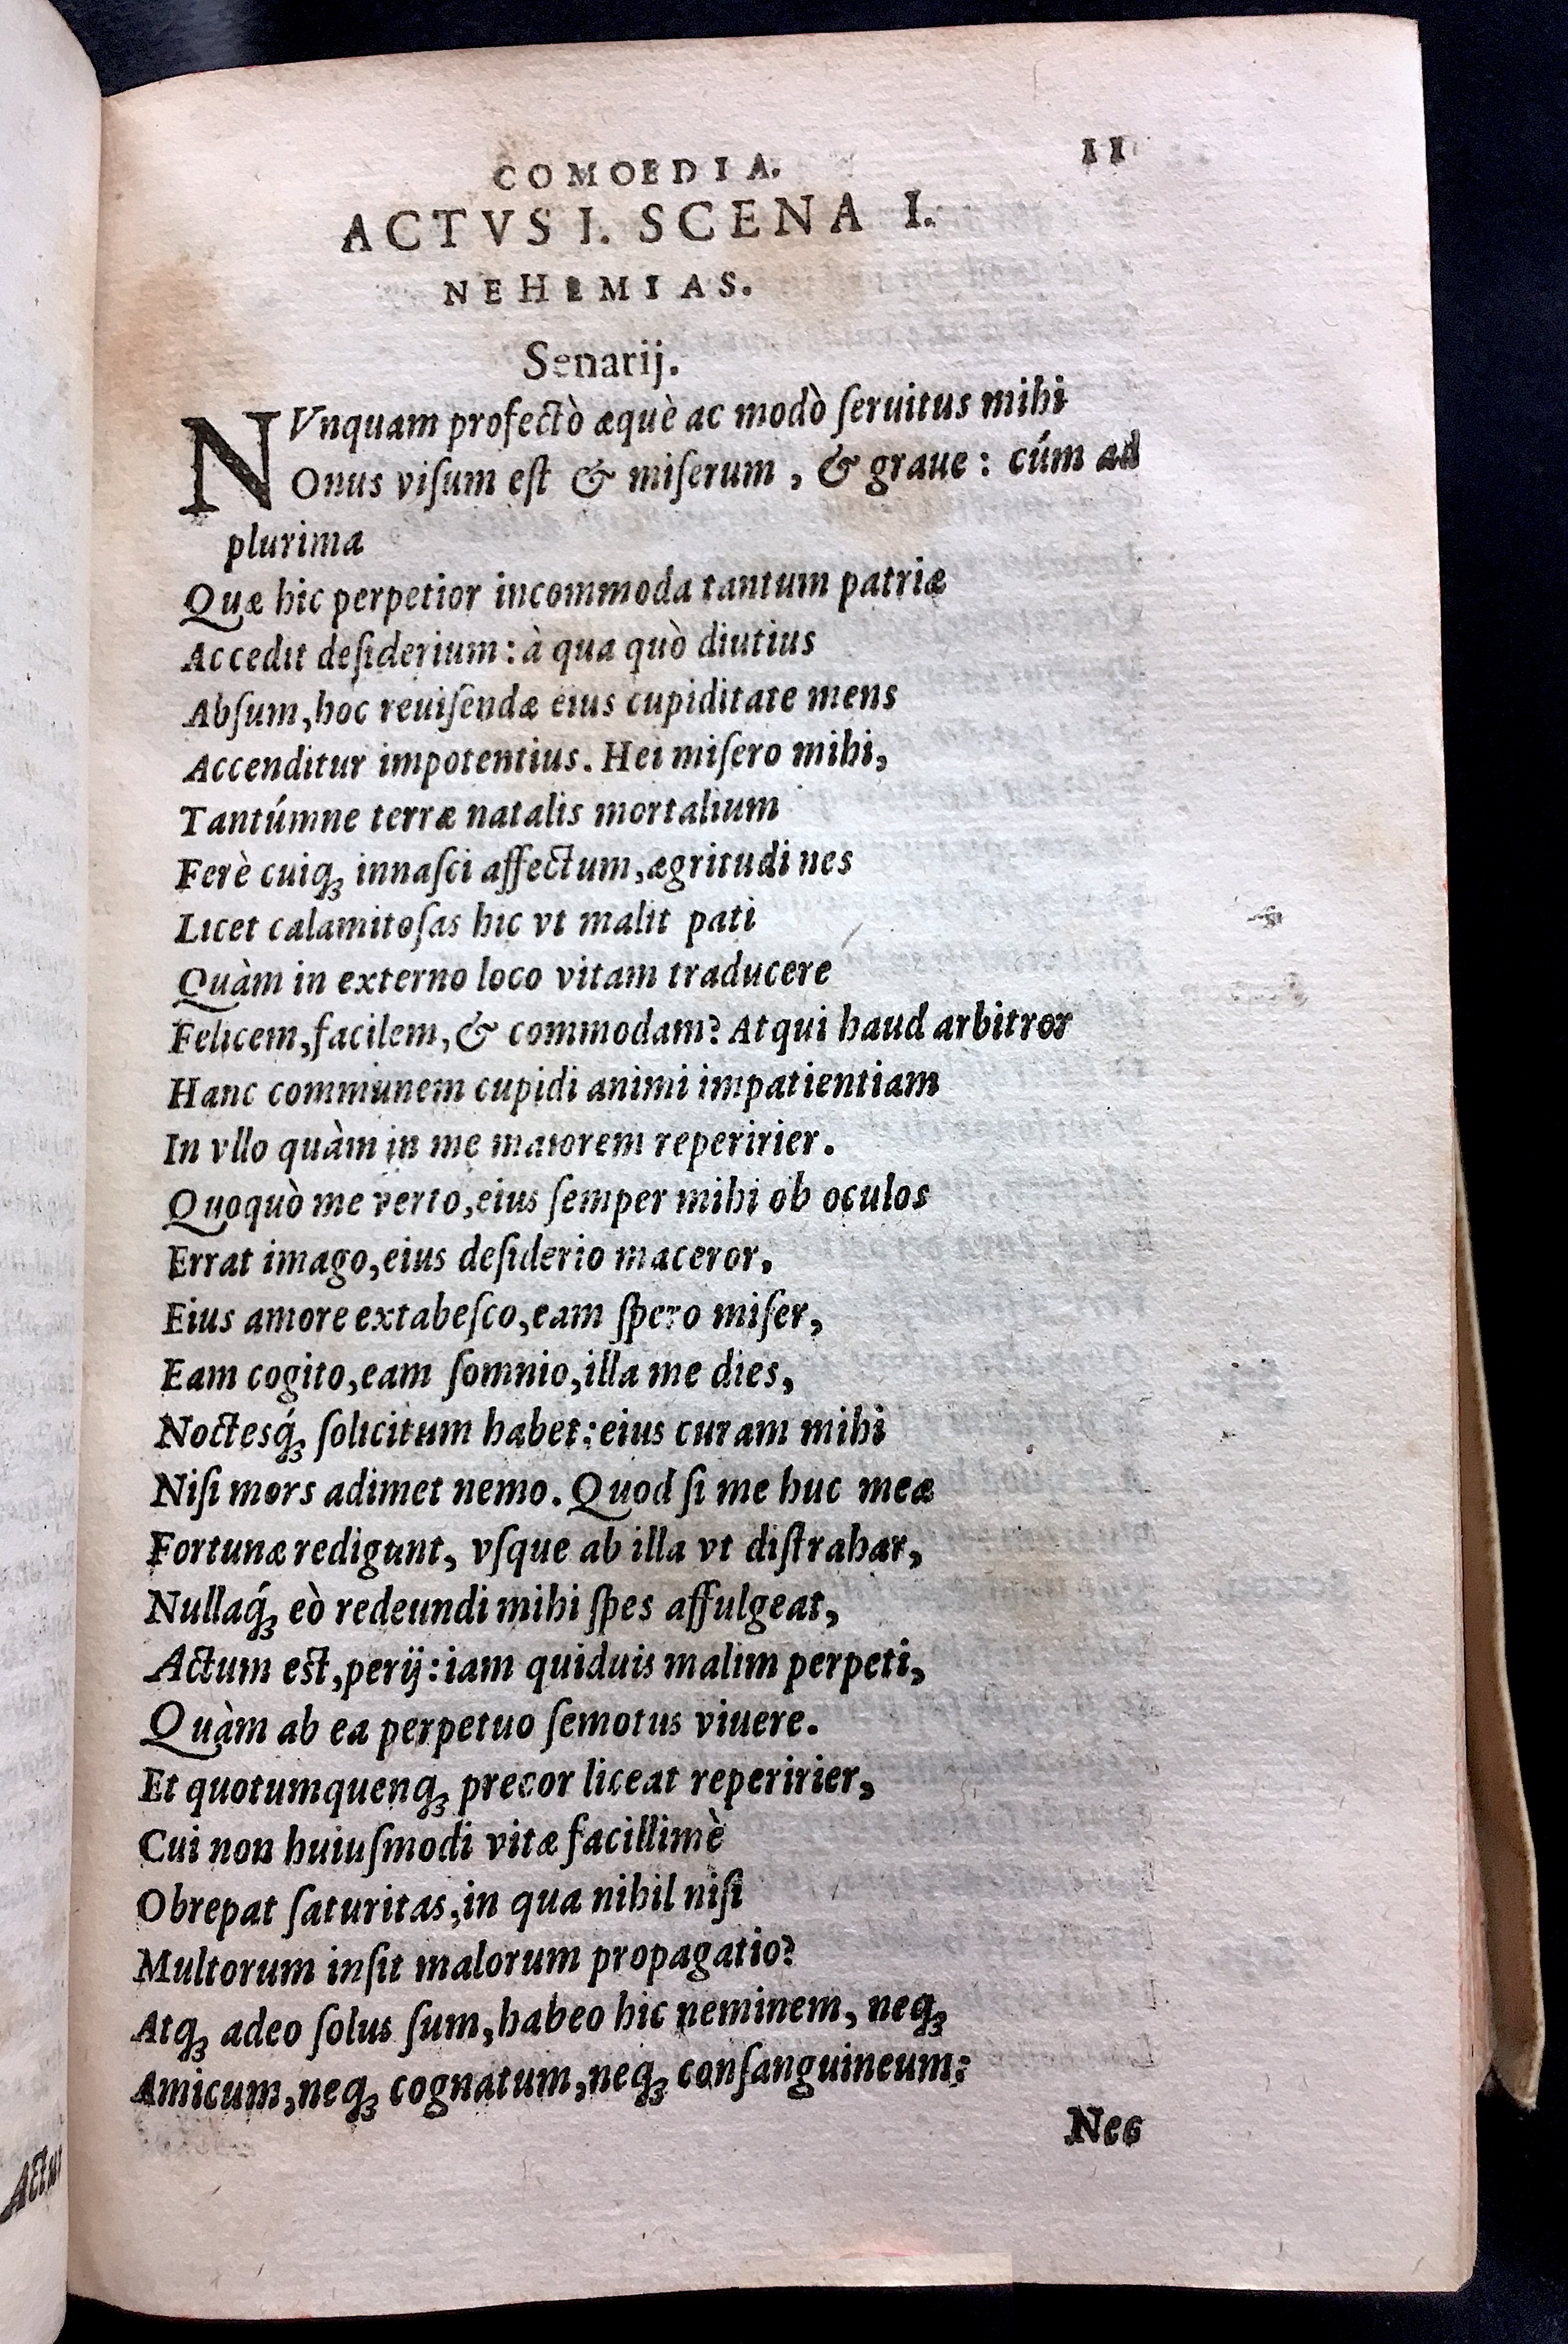 COMOEDIA. 11
ACTVS I. SCENA I.
NEHEMIAS.
Senarij.
NVnquam profectò æquè ac modò ſeruitus mihi
Onus viſum eſt & miſerum, & graue: cúm ad
plurima
Quæ hic perpetior incommoda tantum patriæ
Accedit deſiderium: à qua quò diutius
Abſum, hoc reuiſendæ eius cupiditate mens
Accenditur impotentius. Hei miſero mihi,
Tantúmne terræ natalis mortalium
Ferè cuiqꝫ innaſci affectum, ægritudines
Licet calamitoſas hic vt malit pati
Quàm in externo loco vitam traducere
Felicem, facilem, & commodam? Atqui haud arbitror
Hanc communem cupidi animi impatientiam
In vllo quàm in me maiorem reperirier.
Quoquò me verto, eius ſemper mihi ob oculos
Errat imago, eius deſiderio maceror,
Eius amore extabeſco, eam ſpero miſer,
Eam cogito, eam ſomnio, illa me dies,
Noctesq́ꝫ ſolicitum habet: eius curam mihi
Niſi mors adimet nemo. Quod ſi me huc meæ
Fortunæ redigunt, vſque ab illa vt diſtrahar,
Nullaq́ꝫ eò redeundi mihi ſpes affulgeat,
Actum eſt, perij: iam quiduis malim perpeti,
Quàm ab ea perpetuo ſemotus viuere.
Et quotumquenqꝫ precor liceat reperirier,
Cui non huiuſmodi vitæ facillimè
Obrepat ſaturitas, in qua nihil niſi
Multorum inſit malorum propagatio?
Atqꝫ adeo ſolus ſum, habeo hic neminem, neqꝫ
Amicum, neqꝫ cognatum, neqꝫ conſanguineum:
Nec